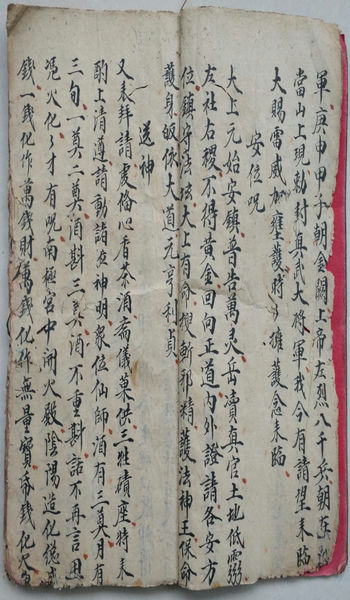 軍上庚申甲子朝金闕上帝左烈八千兵朝在
當山上現勅封真武大將軍我今有請望來臨
大賜雷威加雍護時時擁護急來臨
安位咒
大上元始安鎮普告萬灵岳瀆真官土地低灵
左社右稷不得黃金回向正道內外證請各安方
位鎮守法坛大上有命搜斬邪精護法神王保命
護身皈依大道元亨利貞
送神
又來拜請虔俻心香茶酒齋儀菓供三牲礩座時來
酌上清遵請動諸灵神明象位仙師酒有三奠月有
三旬一奠二奠酒斟三奠酒不重斟話不再言思
凴火化了才有呪南極宮中開火殿陰陽造化德
錢一錢化作萬錢財萬錢化作無量寶帛錢化